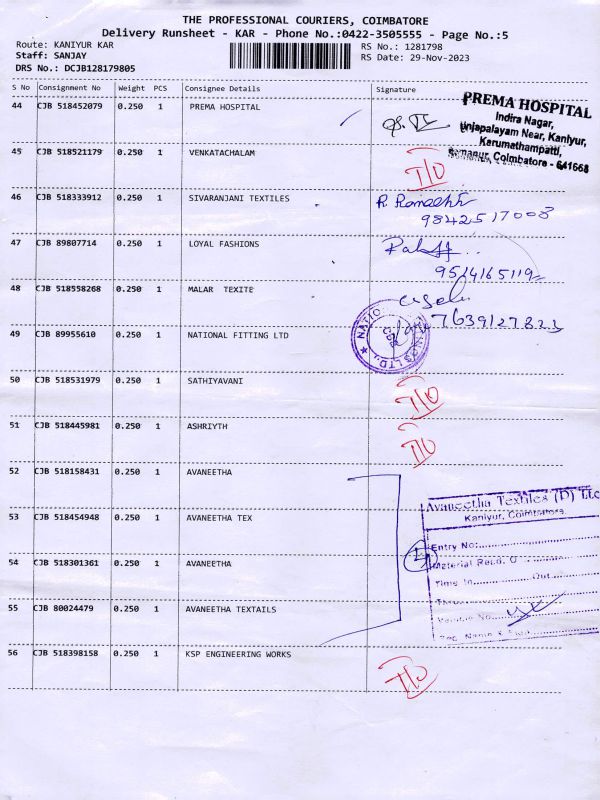 THE PROFESSIONAL COURIERS, COIMBATORE
Delivery Runsheet - KAR - Phone No.:0422-3505555 - Page No.:5
Route: KANIYUR KAR
Staff: SANJAY
DRS No.: DCJB128179805
RS No.: 1281798
RS Date: 29-Nov-2023
S No Consignment No Weight PCS Consignee Details Signature
44 CJB 518452079 0.250 1 PREMA HOSPITAL
PREMA HOSPITAL
Indira Nagar,
Unjapalayam Near, Kaniyur,
Karumathampatti,
Somanur, Coimbatore - 641668
45 CJB 518521179 0.250 1 VENKATACHALAM
T/O
46 CJB 518333912 0.250 1 SIVARANJANI TEXTILES
9842517008
47 CJB 89807714 0.250 1 LOYAL FASHIONS
9524165119
48 CJB 518558268 0.250 1 MALAR TEXITE
7639127823
49 CJB 89955610 0.250 1 NATIONAL FITTING LTD
50 CJB 518531979 0.250 1 SATHIYAVANI
T/O
51 CJB 518445981 0.250 1 ASHRIYTH
T/O
52 CJB 518158431 0.250 1 AVANEETHA
53 CJB 518454948 0.250 1 AVANEETHA TEX
54 CJB 518301361 0.250 1 AVANEETHA
55 CJB 80024479 0.250 1 AVANEETHA TEXTAILS
Avaneetha Textiles (P) Ltd
Kaniyur, Coimbatore
Entry No:
4
Material Recd. O
Time In Out
Vehicle No
Sec. Name & Sign
56 CJB 518398158 0.250 1 KSP ENGINEERING WORKS
T/O